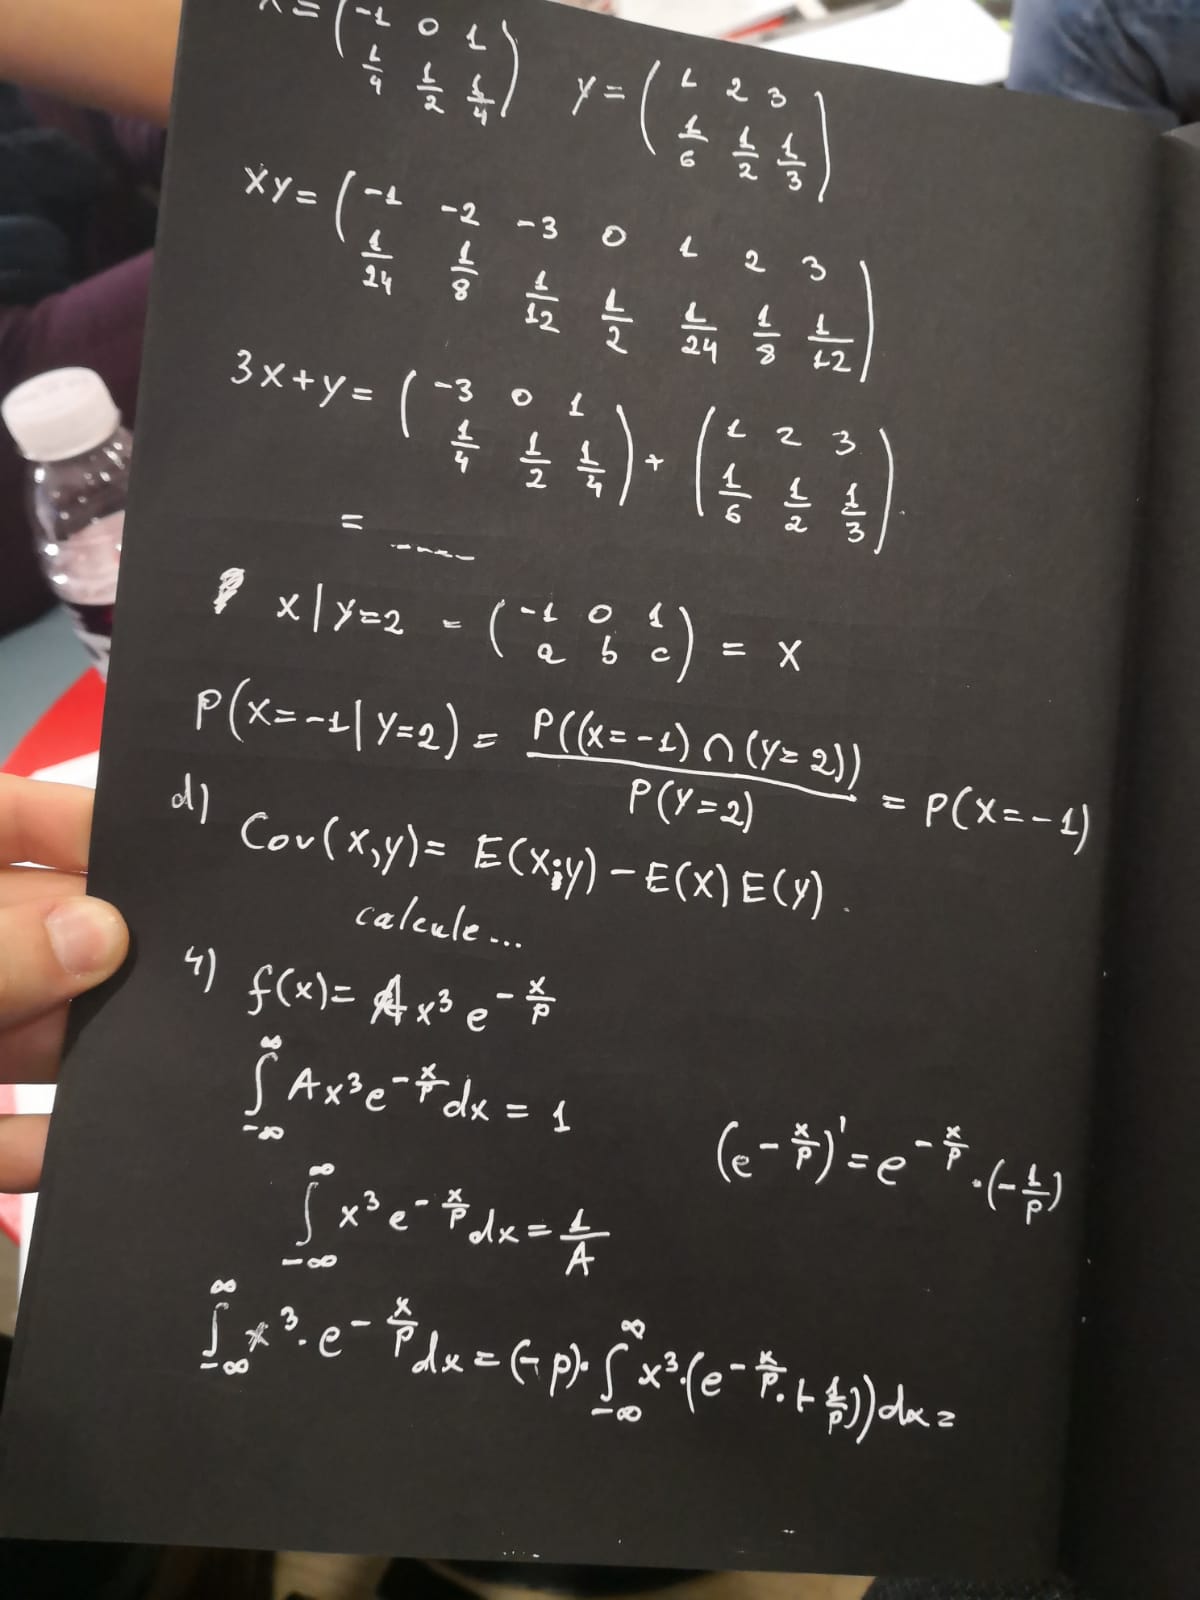 X = ( -1 0 1
1/4 1/2 1/4 ) Y = ( 1 2 3
1/6 1/2 1/3 )
XY = ( -1 -2 -3 0 1 2 3
1/24 1/8 1/12 1/2 1/24 1/8 1/12 )
3X+Y = ( -3 0 1
1/4 1/2 1/4 ) + ( 1 2 3
1/6 1/2 1/3 )
= -----
X|Y=2 = ( -1 0 1
a b c ) = X
P(X=-1|Y=2) = P((X=-1)∩(Y=2)) / P(Y=2) = P(X=-1)
d) Cov(X,Y) = E(X;Y) - E(X)E(Y).
calcule...
4) f(x) = A x³ e^(-x/p)
∫_{-∞}^{∞} A x³ e^(-x/p) dx = 1
(e^(-x/p))' = e^(-x/p) · (-1/p)
∫_{-∞}^{∞} x³ e^(-x/p) dx = 1/A
∫_{-∞}^{∞} x³ · e^(-x/p) dx = (-p) · ∫_{-∞}^{∞} x³ · (e^(-x/p) · (-1/p)) dx =